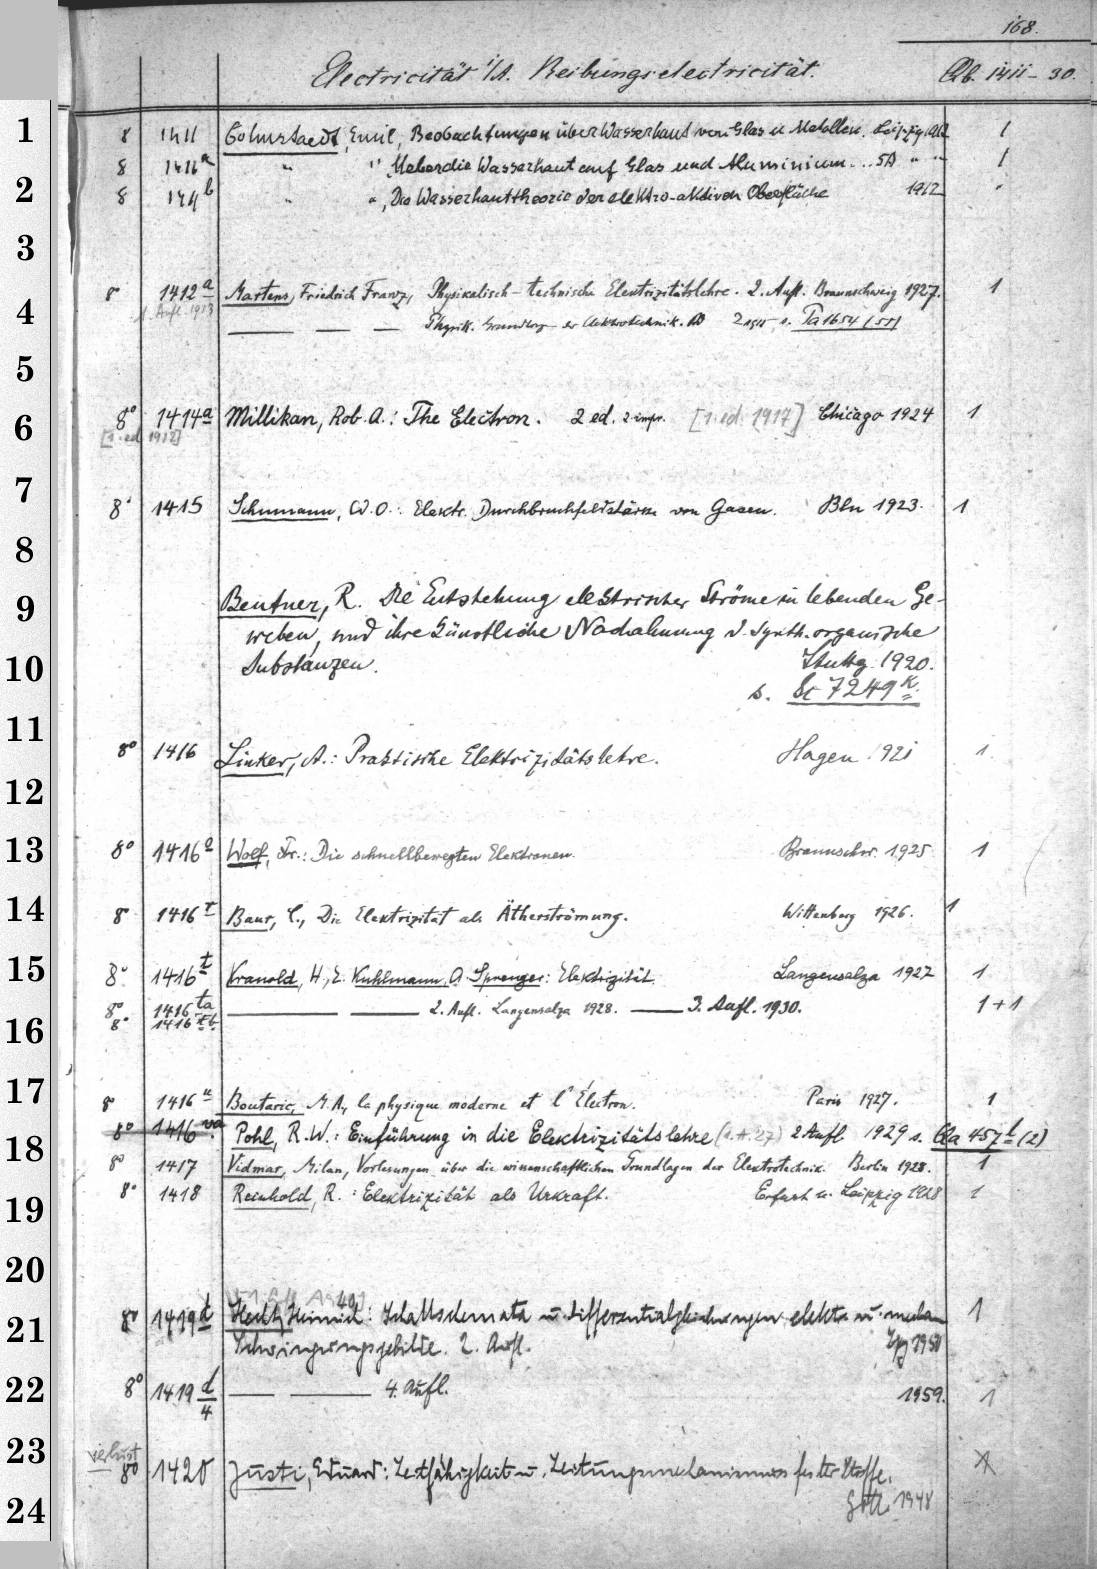 168.
Electricität 1/A. Reibungselectricität. Qb. 1411 - 30.
1
8 1411 Cohnstaedt, Emil, Beobachtungen über Wasserhaut von Glas u Metallen. Leipzig 1912 1
8 1411a " " Ueber die Wasserhaut auf Glas und Aluminium... SA " " 1
2
8 1411b " ", Die Wasserhauttheorie der elektro-aktiven Oberfläche 1912 "
3
8° 1412a Martens, Friedrich Franz, Physikalisch-technische Elektrizitätslehre. 2. Aufl. Braunschweig 1927. 1
1. Aufl. 1913
4
Physik. Grundlag der Elektrotechnik. 1915, s. Ta 1654 (55)
5
8° 1414a Millikan, Rob. A.: The Electron. 2 ed. 2 impr. [1. ed. 1917] Chicago 1924 1
6
[1. ed. 1917]
7
8° 1415 Schumann, W.O.: Elektr. Durchbruchfeldstärke von Gasen. Bln 1923. 1
8
9
Beutner, R. Die Entstehung elektrischer Ströme in lebenden Ge-
weben, und ihre künstliche Nachahmung d. synth. organische
10
Substanzen. Stuttg. 1920.
s. 7249k.
11
8° 1416 Linker, A.: Praktische Elektrizitätslehre. Hagen 1921 1
12
13
8° 1416 Wolf, Fr.: Die schnellbewegten Elektronen. Braunschw. 1925 1
14
8° 1416r Baur, C., Die Elektrizität als Ätherströmung. Wittenberg 1926. 1
15
8° 1416t Kranold, H., E. Kuhlmann, O. Sprenger: Elektrizität. Langensalza 1927 1
8° 1416ta 2. Aufl. Langensalza 1928. 3. Aufl. 1930. 1+1
8° 1416tb
16
17
8° 1416u Boutaric, M. A., la physique moderne et l'Électron. Paris 1927. 1
8° 1416va Pohl, R.W.: Einführung in die Elektrizitätslehre (1. A. 27) 2 Aufl 1929 s. Qa 457t (2)
18
8° 1417 Vidmar, Milan, Vorlesungen über die wissenschaftlichen Grundlagen der Elektrotechnik. Berlin 1928. 1
8° 1418 Reinhold, R.: Elektrizität als Urkraft. Erfurt u. Leipzig 1928 1
19
20
8° 1419d Hecht, Heinrich: Schaltschemata u. Differentialgleichungen elektr. u. mechan 1
21
Schwingungsgebilde. 2. Aufl. Lpg 1950
22
8° 1419d/4 4. Aufl. 1959. 1
23
Verlust
8° 1420 Justi, Eduard: Leitfähigkeit u. Leitungsmechanismus fester Stoffe.
24
Gött. 1948